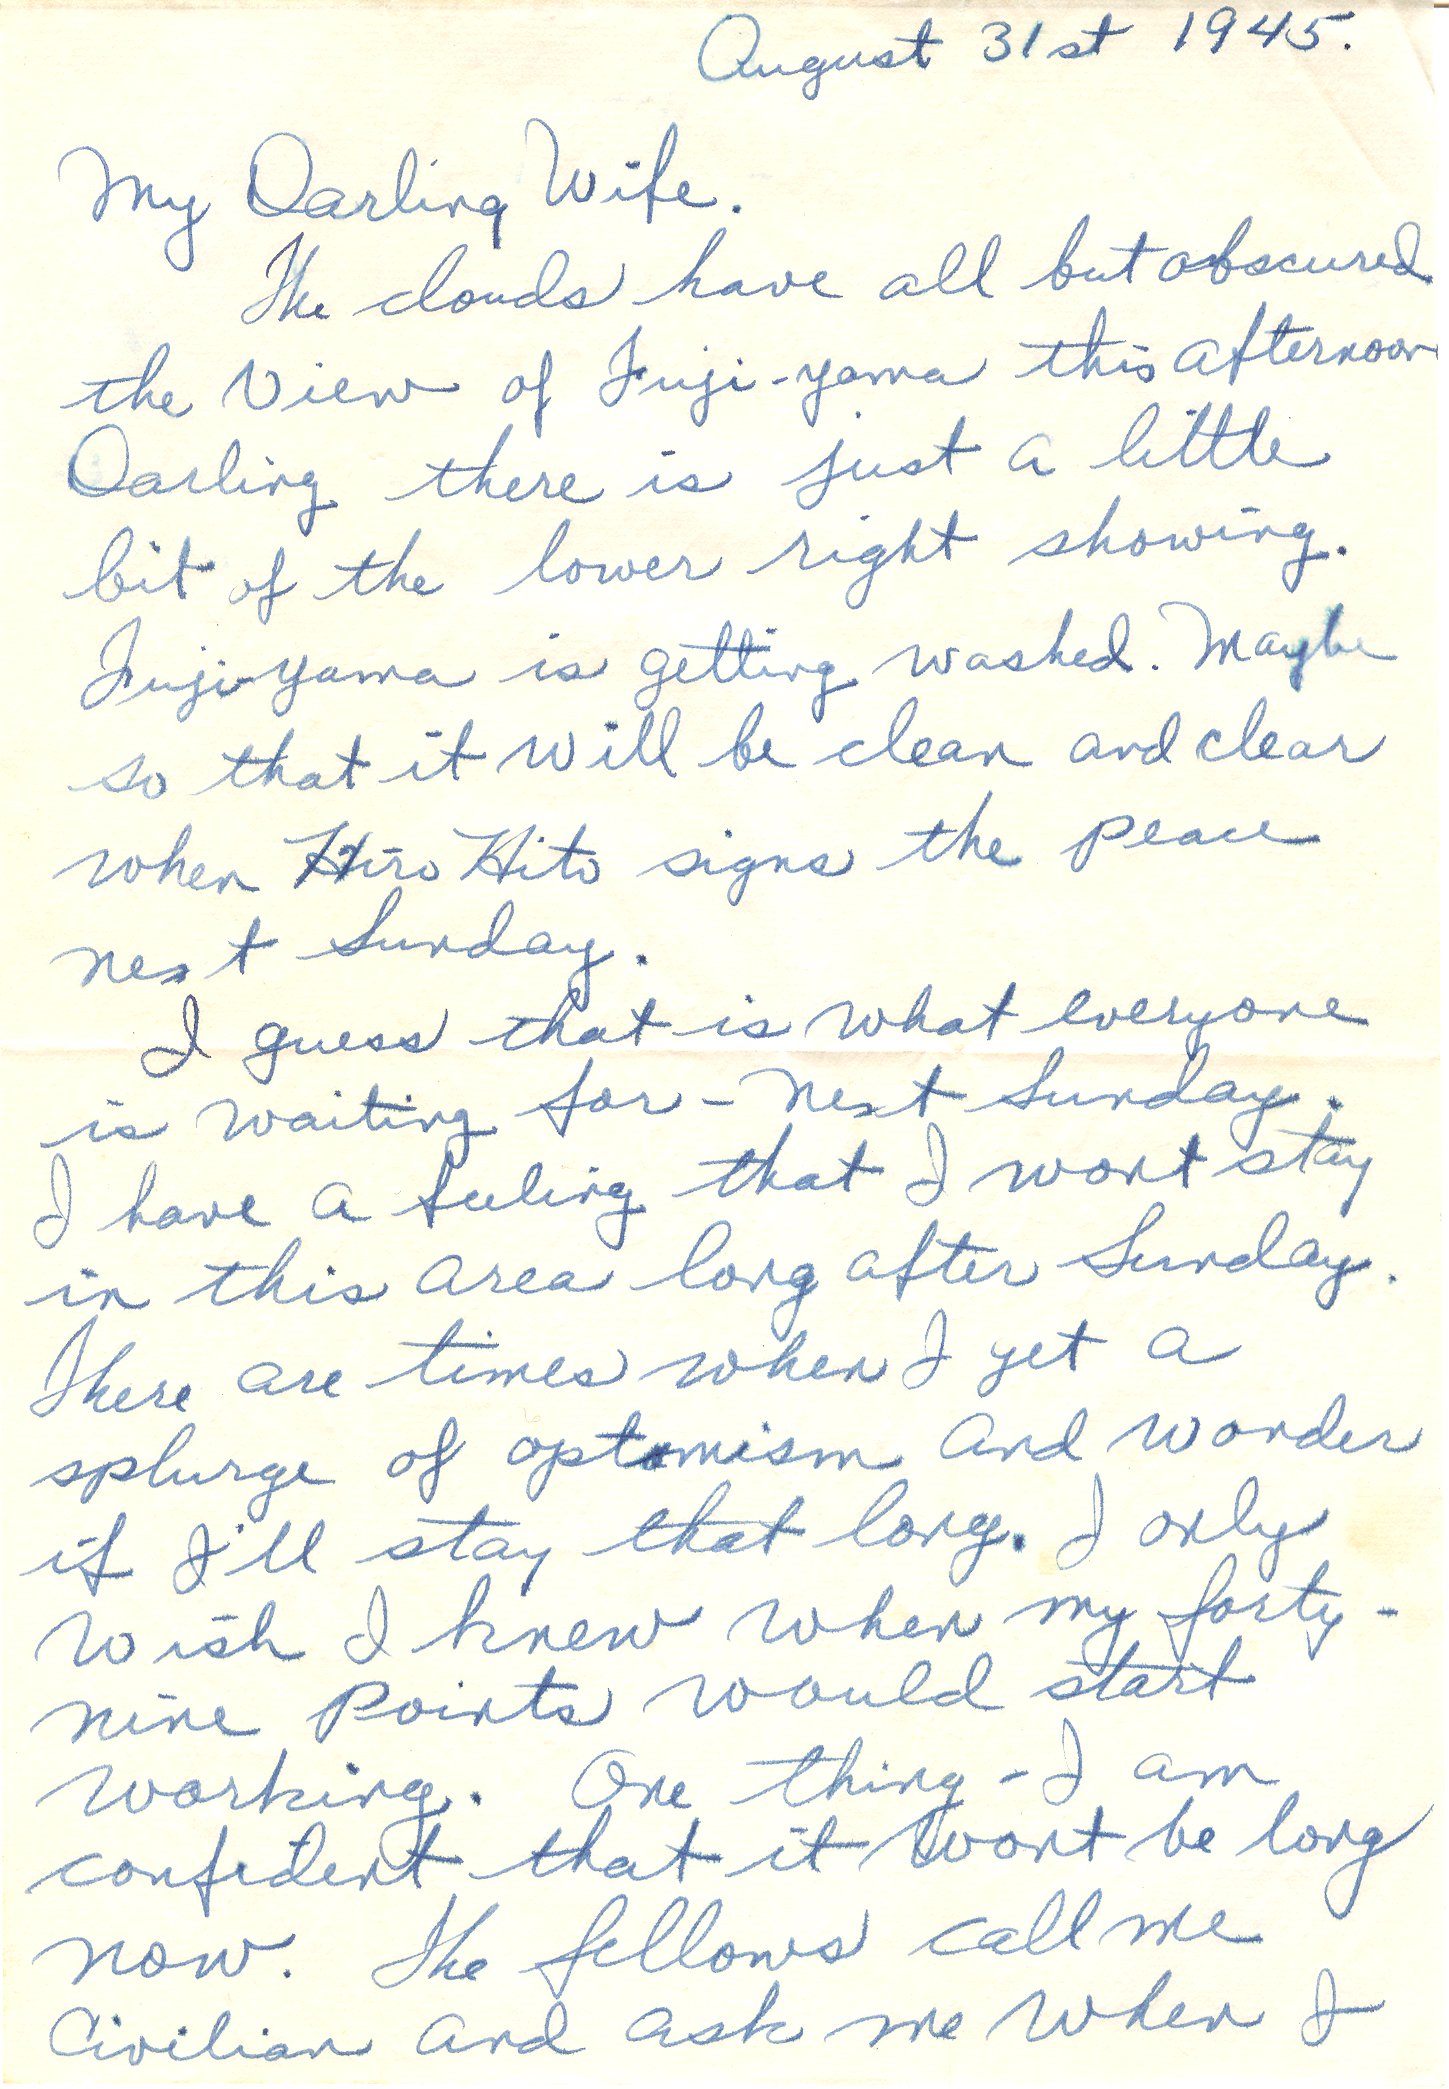 August 31st 1945.
My Darling Wife.
The clouds have all but obscured
the view of Fuji-yama this afternoon
Darling there is just a little
bit of the lower right showing.
Fuji-yama is getting washed. Maybe
so that it will be clean and clear
when Hiro Hito signs the peace
next Sunday.
I guess that is what everyone
is waiting for - next Sunday.
I have a feeling that I wont stay
in this area long after Sunday.
There are times when I get a
splurge of optomism and wonder
if I'll stay that long. I only
wish I knew when my forty-
nine points would start
working. One thing - I am
confident that it wont be long
now. The fellows call me
Civilian and ask me when I